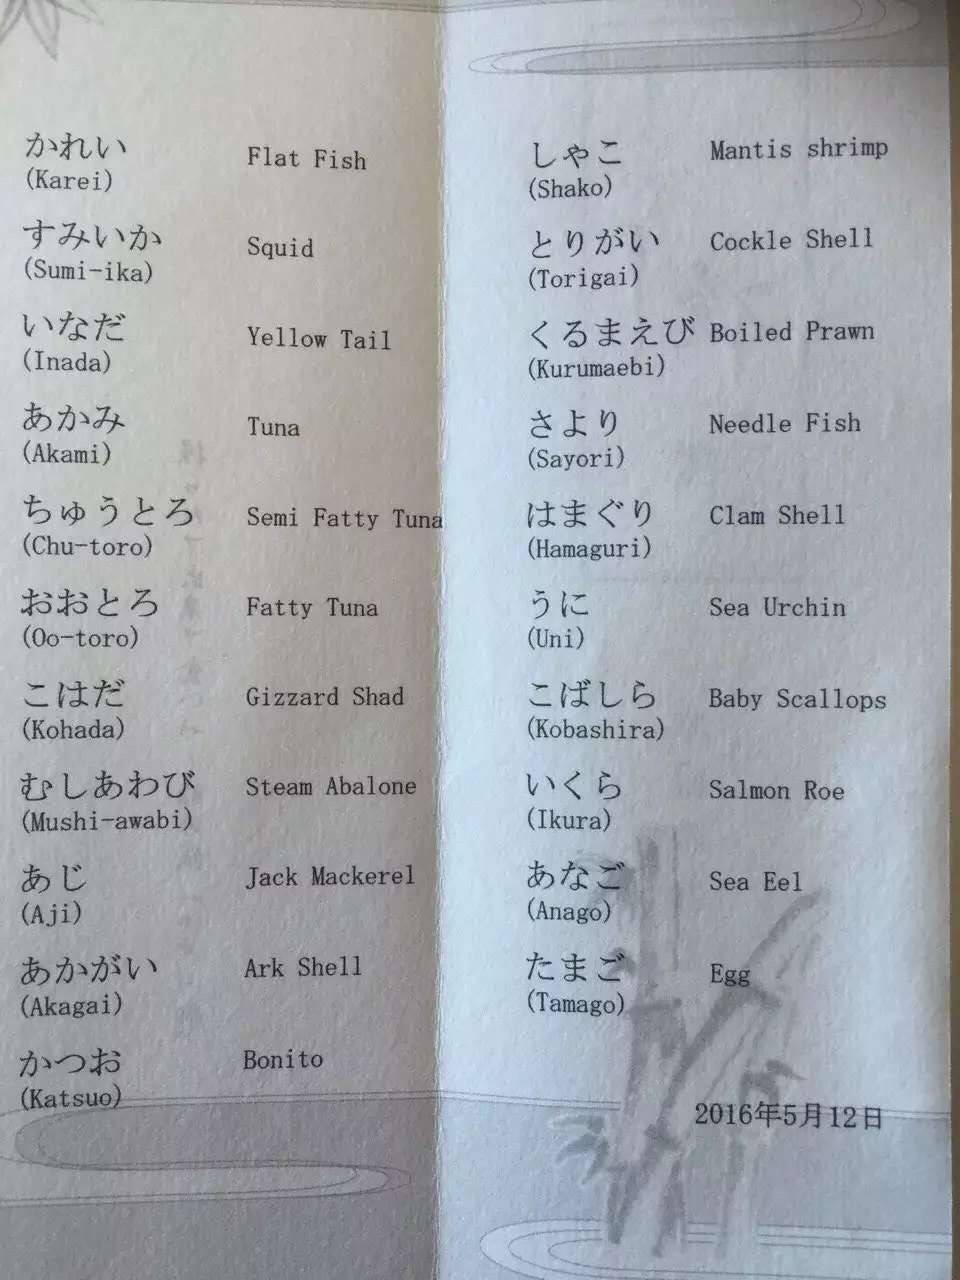 かれい Flat Fish
(Karei)
すみいか Squid
(Sumi-ika)
いなだ Yellow Tail
(Inada)
あかみ Tuna
(Akami)
ちゅうとろ Semi Fatty Tuna
(Chu-toro)
おおとろ Fatty Tuna
(Oo-toro)
こはだ Gizzard Shad
(Kohada)
むしあわび Steam Abalone
(Mushi-awabi)
あじ Jack Mackerel
(Aji)
あかがい Ark Shell
(Akagai)
かつお Bonito
(Katsuo)
しゃこ Mantis shrimp
(Shako)
とりがい Cockle Shell
(Torigai)
くるまえび Boiled Prawn
(Kurumaebi)
さより Needle Fish
(Sayori)
はまぐり Clam Shell
(Hamaguri)
うに Sea Urchin
(Uni)
こばしら Baby Scallops
(Kobashira)
いくら Salmon Roe
(Ikura)
あなご Sea Eel
(Anago)
たまご Egg
(Tamago)
2016年5月12日